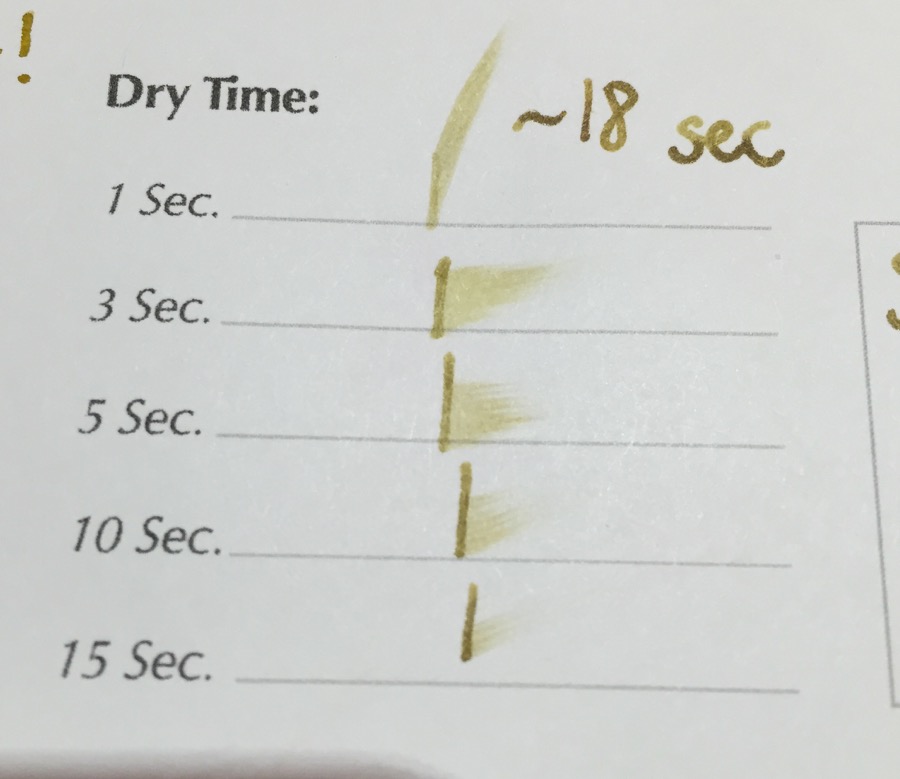 !
Dry Time:
~18 sec
1 Sec.
3 Sec.
5 Sec.
10 Sec.
15 Sec.